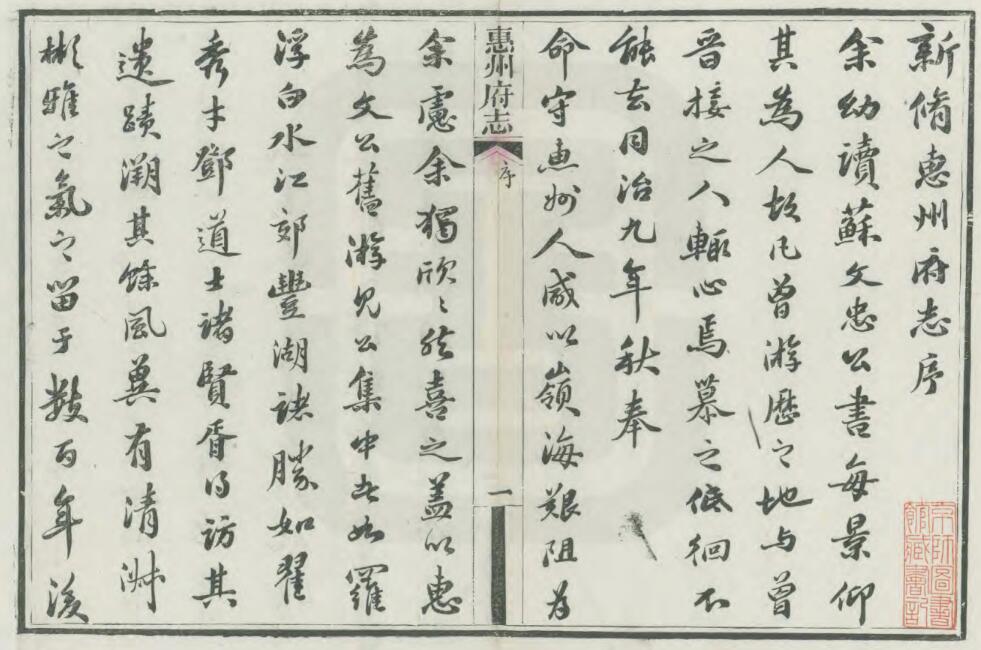 新脩惠州府志序
余幼讀蘇文忠公書每景仰
其為人故凡曾游歷之地与曾
晉接之人輒心焉慕之低徊不
能去同治九年秋奉
命守惠州人咸以嶺海艱阻为
惠州府志
序
一
余慮余獨欣〻然喜之盖以惠
為文公舊游見公集中者如羅
浮白水江郊豐湖諸勝如翟
秀才鄧道士諸賢胥得訪其
遗蹟溯其餘風冀有清淑
彬雅之氣之留于数百年後
京師圖書
館藏書記